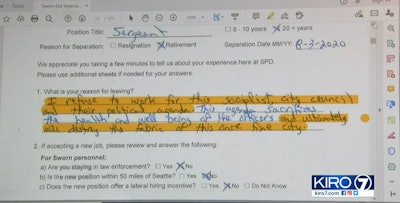 Tools
Sworn Exit Interview...
Sign In
125%
Position Title: Sergeant
6 - 10 years 20 + years
Reason for Separation: Resignation Retirement Separation Date MM/YY: 8-3-2020
We appreciate you taking a few minutes to tell us about your experience here at SPD.
Please use additional sheets if needed for your answers.
1. What is your reason for leaving?
I refuse to work for this socialist city council
and their political agenda. This agenda sacrifices
the health and well being of the officers and ultimately
will destroy the fabric of this once fine city.
2. If accepting a new job, please review and answer the following:
For Sworn personnel:
a) Are you staying in law enforcement? Yes No
b) Is the new position within 50 miles of Seattle? Yes No
c) Does the new position offer a lateral hiring incentive? Yes No Do Not Know
KIRO 7
kiro7.com